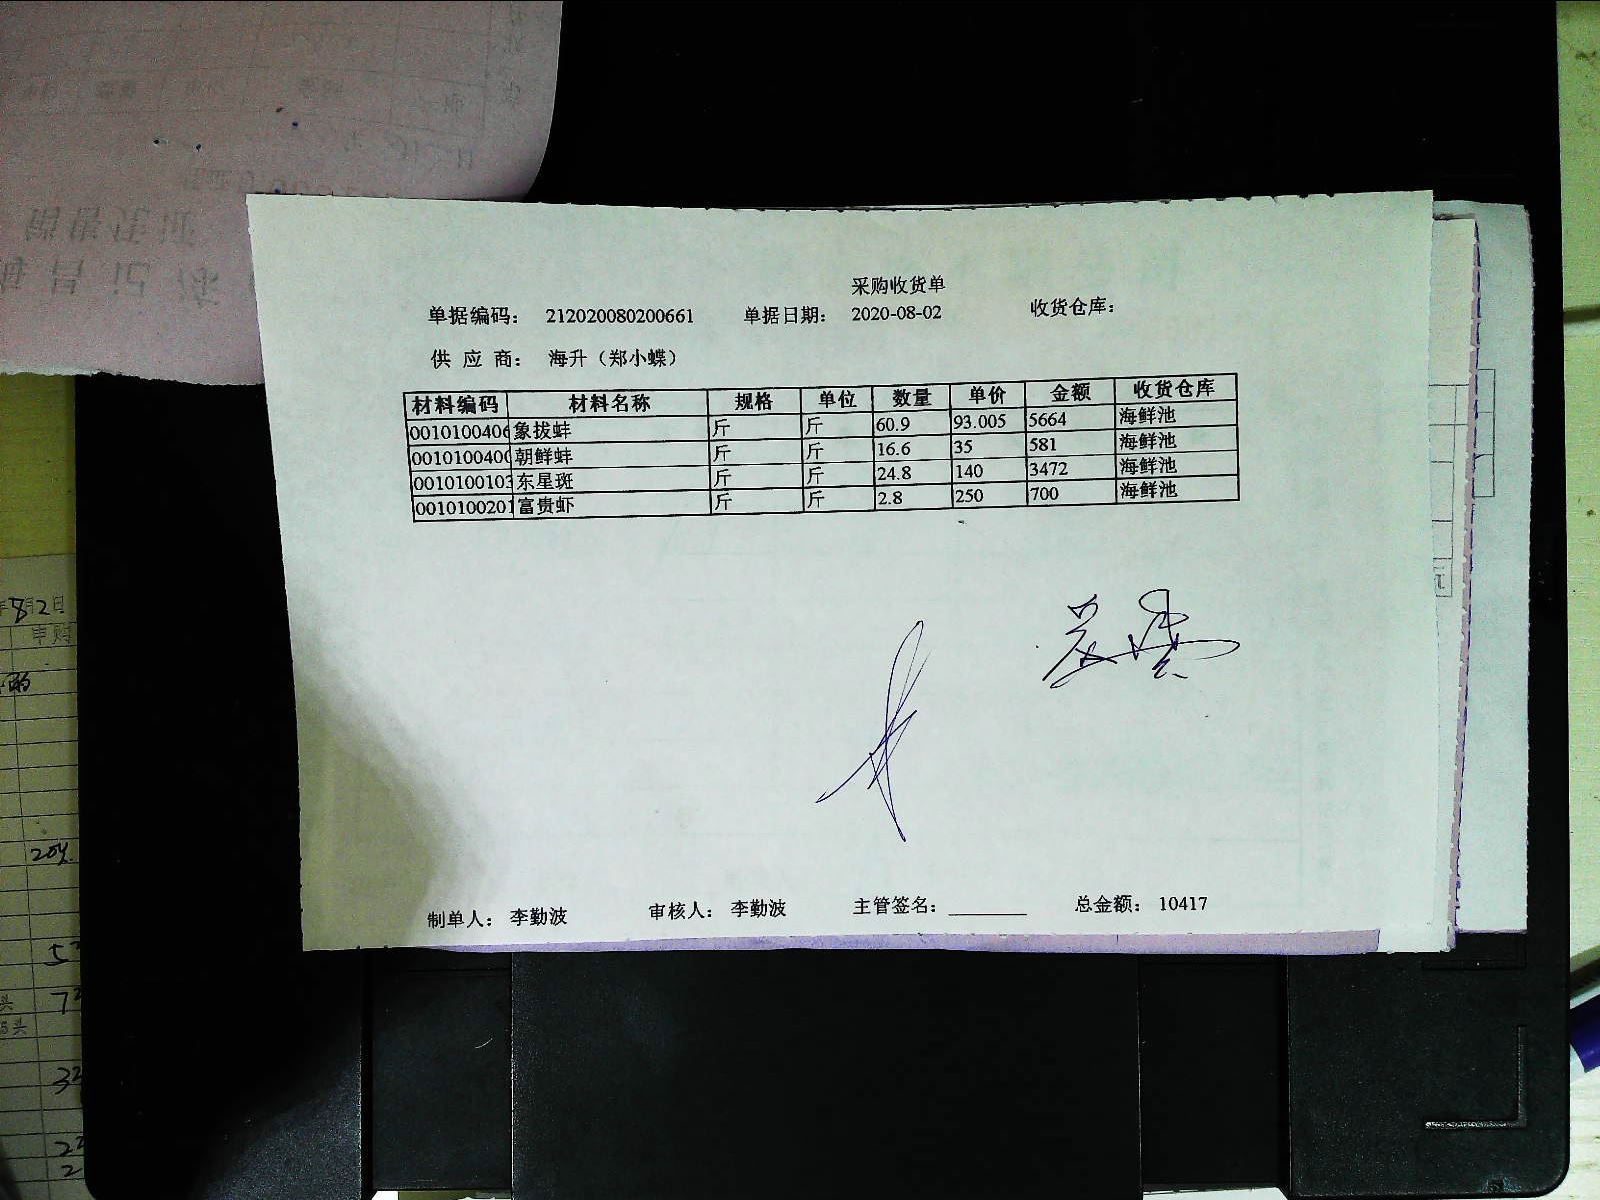 采购收货单
单据编码： 212020080200661 单据日期： 2020-08-02 收货仓库：
供 应 商： 海升（郑小蝶）
材料编码 材料名称 规格 单位 数量 单价 金额 收货仓库
0010100406 象拔蚌 斤 斤 60.9 93.005 5664 海鲜池
001010040 朝鲜蚌 斤 斤 16.6 35 581 海鲜池
001010010 东星斑 斤 斤 24.8 140 3472 海鲜池
001010020 富贵虾 斤 斤 2.8 250 700 海鲜池
制单人： 李勤波 审核人： 李勤波 主管签名： 总金额： 10417
8月2日
申购